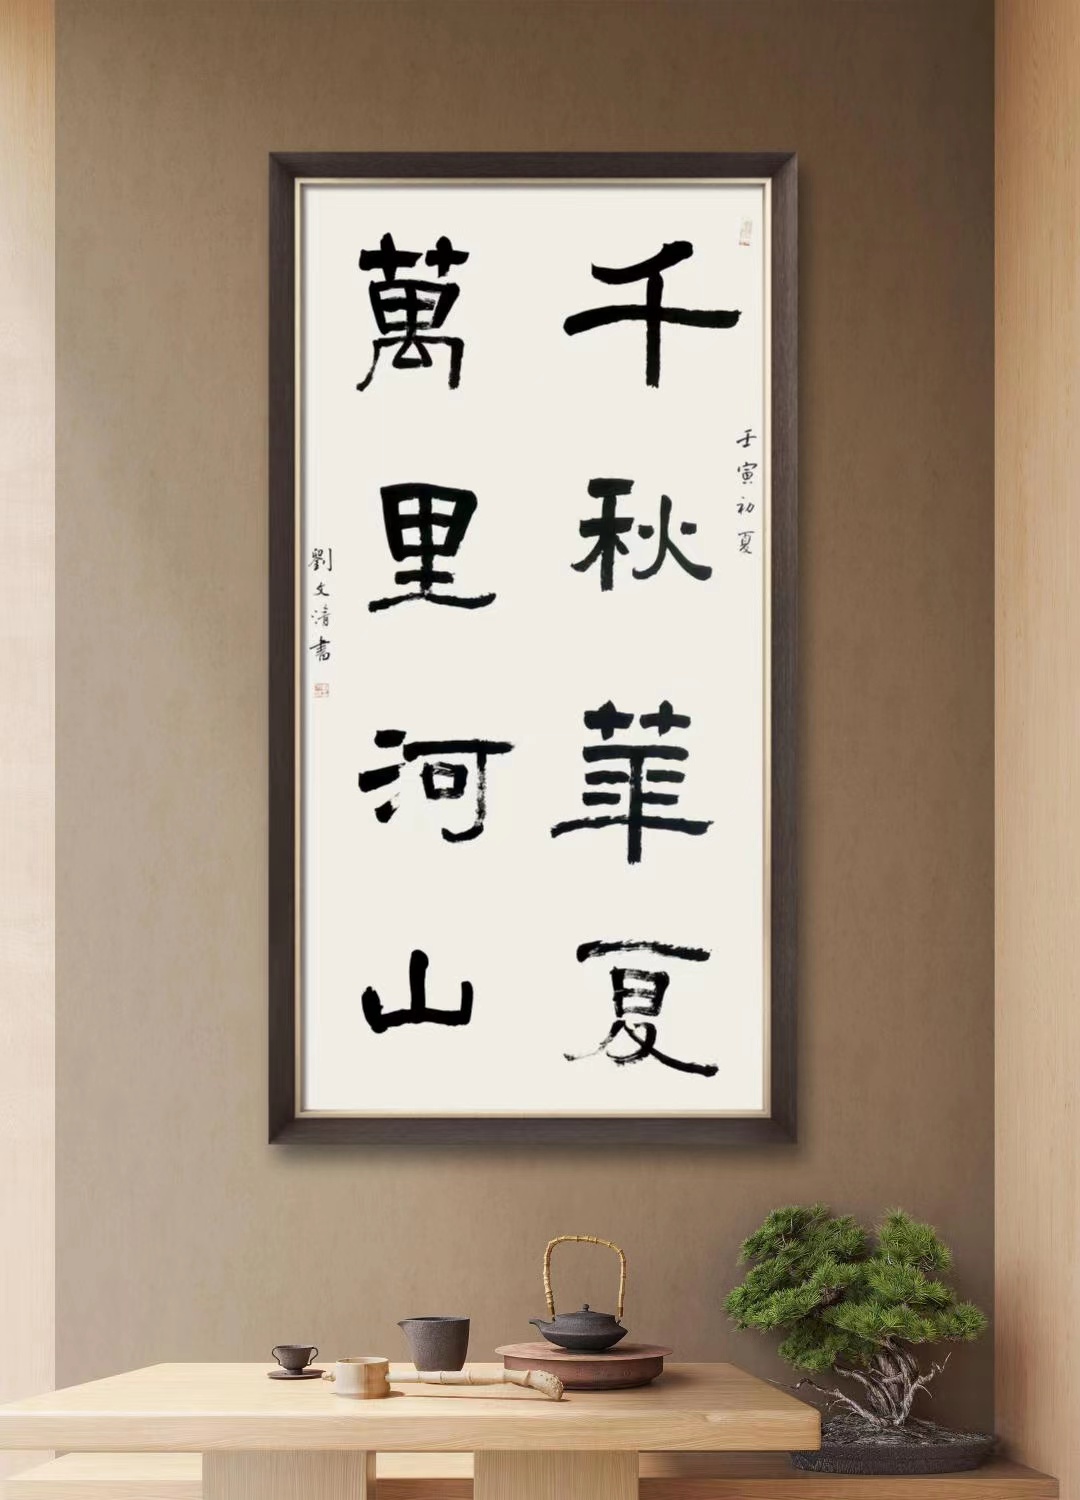 千秋華夏
萬里河山
壬寅初夏
劉文清書